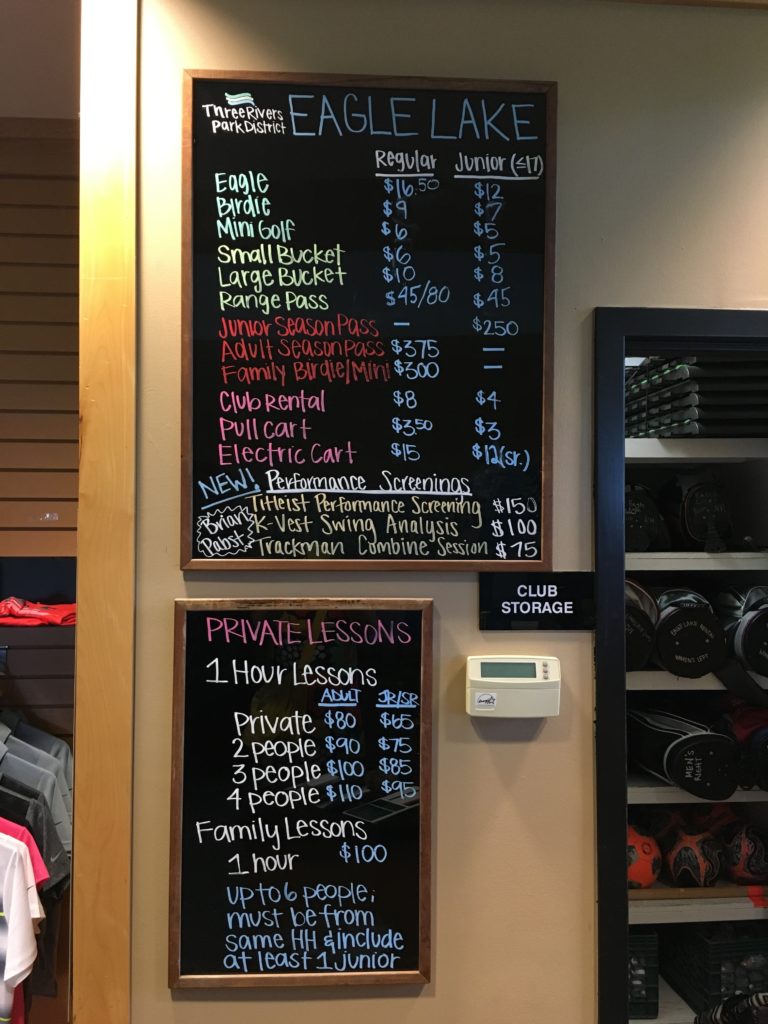 Three Rivers
Park District
EAGLE LAKE
Regular Junior (≤17)
Eagle $16.50 $12
Birdie $9 $7
Mini Golf $6 $5
Small Bucket $6 $5
Large Bucket $10 $8
Range Pass $45/80 $45
Junior Season Pass — $250
Adult Season Pass $375 —
Family Birdie/Mini $300 —
Club Rental $8 $4
Pull Cart $3.50 $3
Electric Cart $15 $12(sr.)
NEW! Performance Screenings
Brian
Pabst
Titleist Performance Screening $150
K-Vest Swing Analysis $100
Trackman Combine Session $75
CLUB
STORAGE
PRIVATE LESSONS
1 Hour Lessons
ADULT JR/SR
Private $80 $65
2 people $90 $75
3 people $100 $85
4 people $110 $95
Family Lessons
1 hour $100
up to 6 people;
must be from
same HH & include
at least 1 junior
EAGLE LAKE
WOMEN'S LEFT
MEN'S
RIGHT